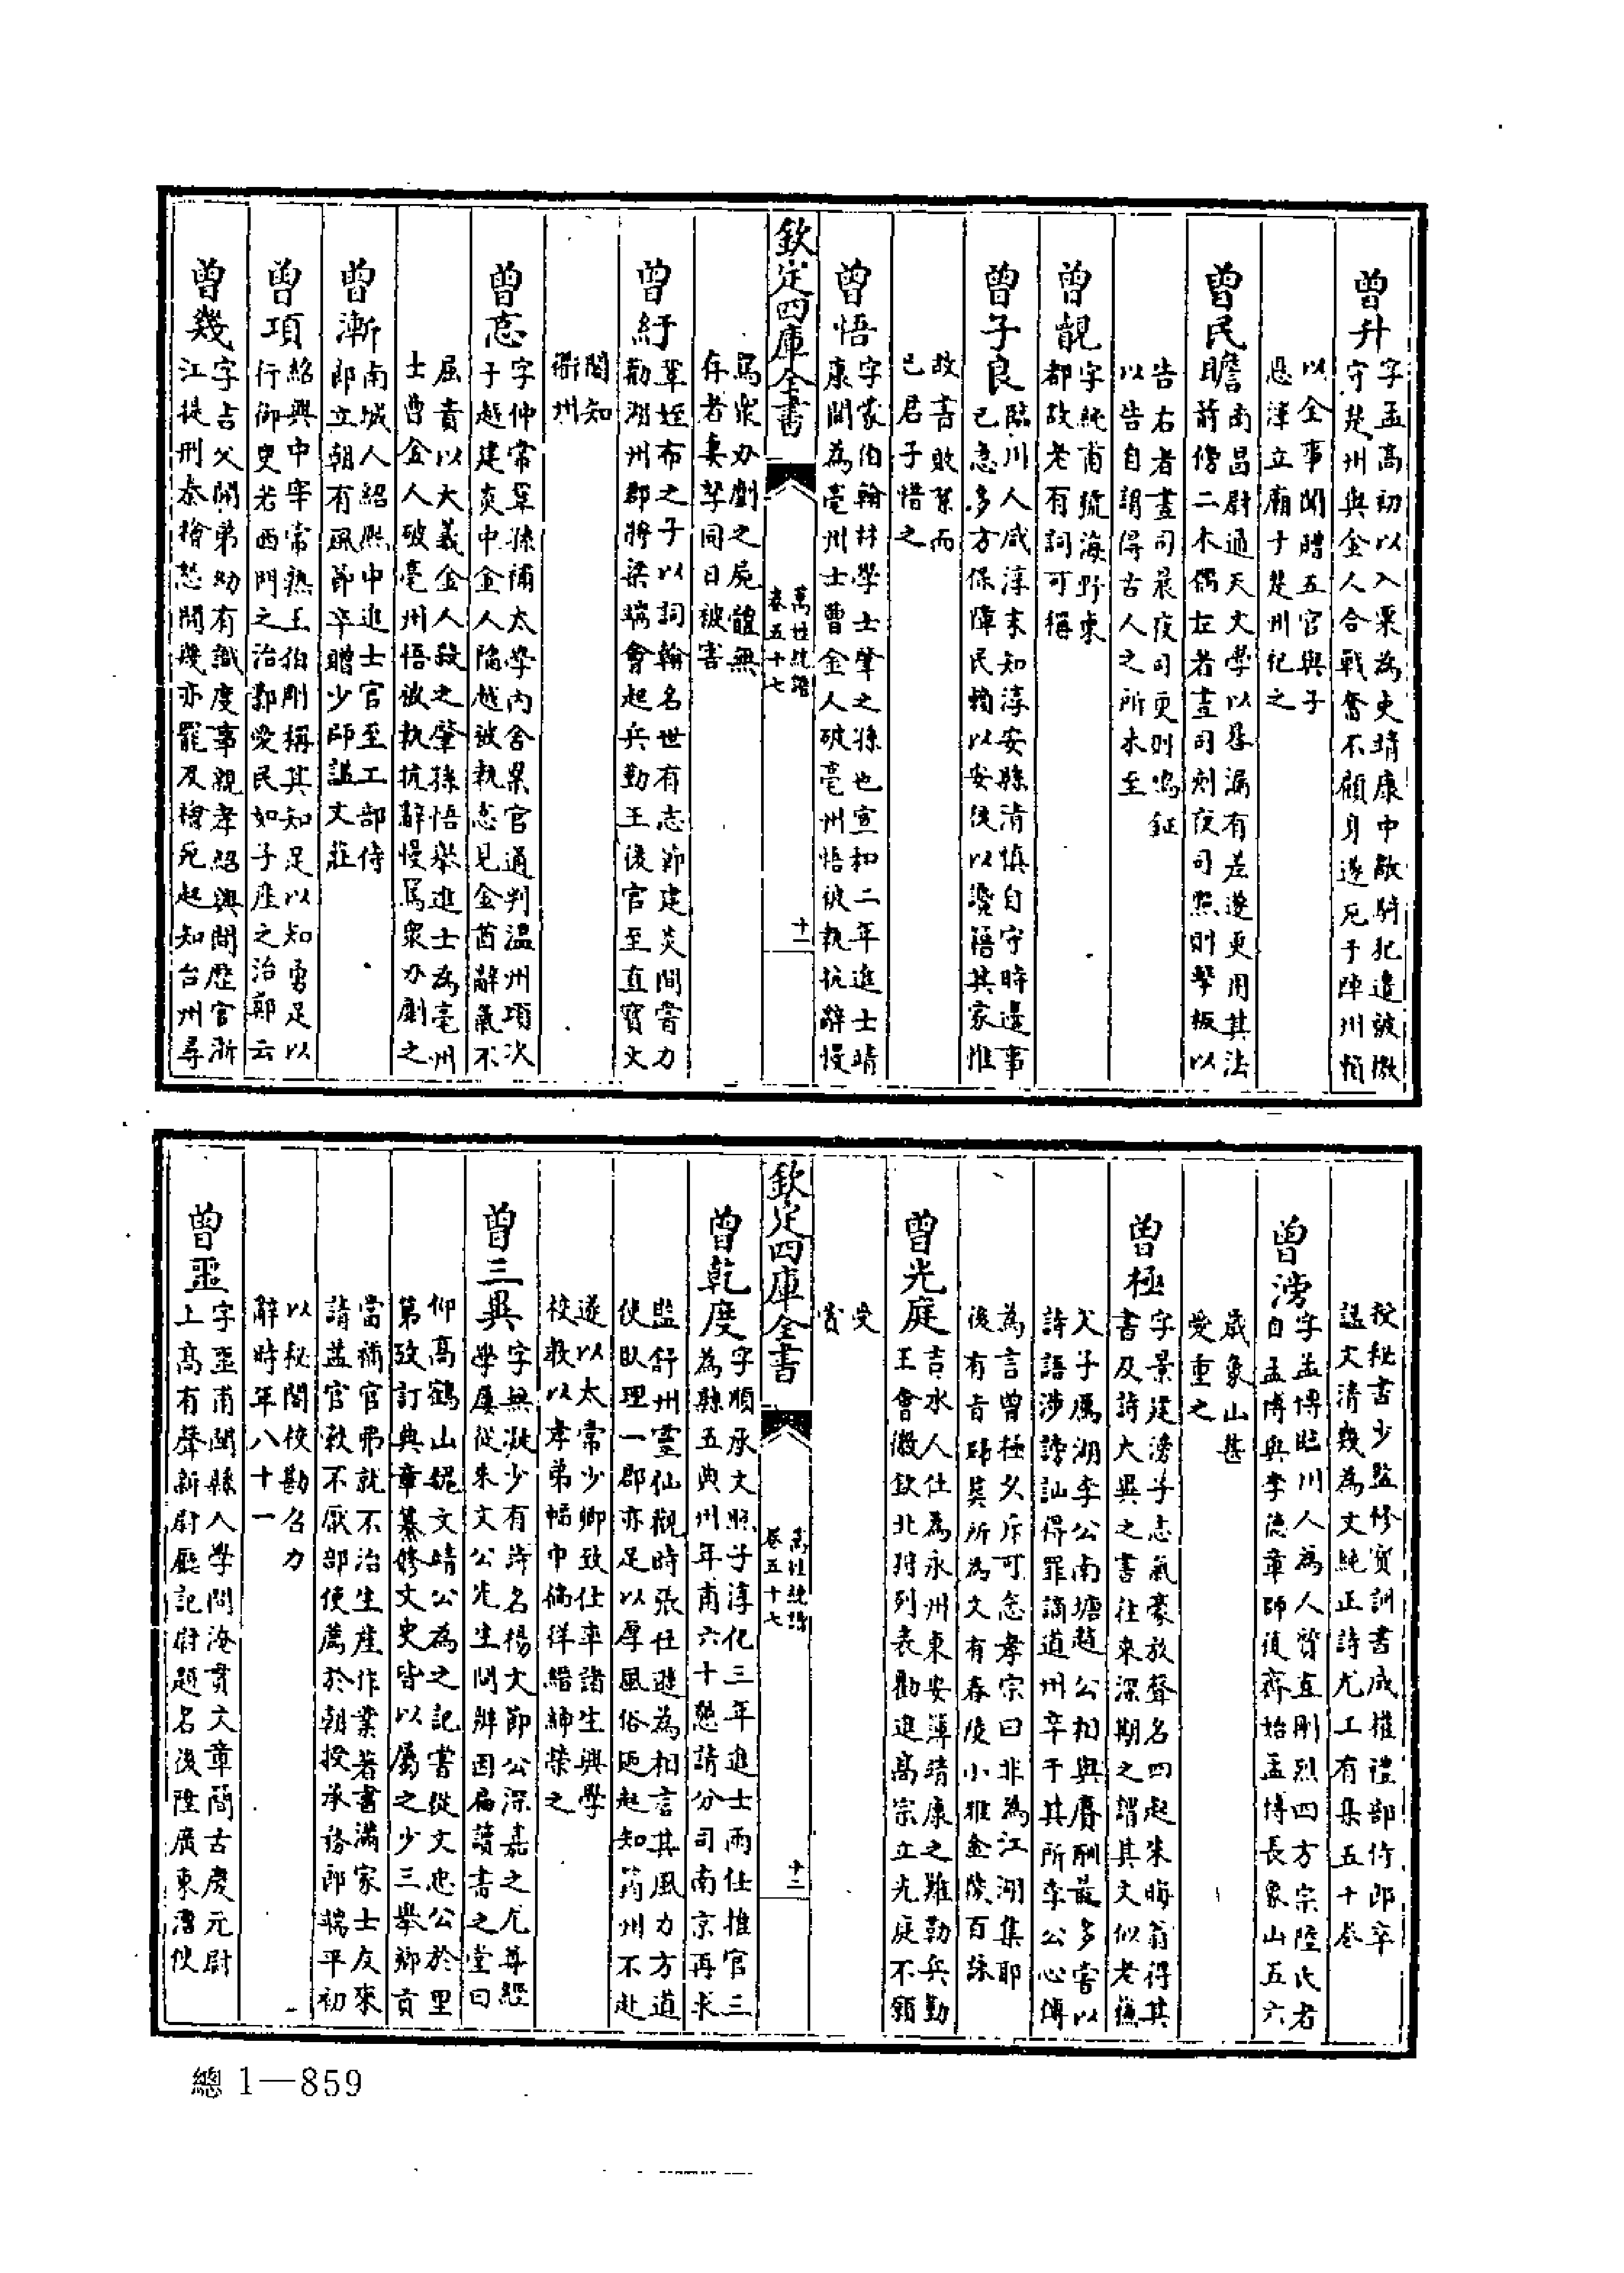 曾升
字孟高初以入粟為吏靖康中敵騎犯邊被檄
守楚州與金人合戰奮不顧身遂死于陣州頒
以全事聞贈五官與子
恩澤立廟于楚州祀之
曾民瞻
南昌尉通天文學以晷漏有差遂更用其法
前傍二木偶左者晝司刻夜司㸃則擊板以
告右者晝司辰夜司更則鳴鉦
以告自謂得古人之所未至
曾覿
字純甫號海野東
都故老有詞可稱
曾子良
臨川人咸淳末知淳安縣清慎自守時邊事
已急多方保障民賴以安後以讒籍其家惟
故書敗絮而
已君子惜之
曾悟
字蒙伯翰林學士肇之孫也宣和二年進士靖
康間為亳州士曹金人破亳州悟被執抗辭慢
欽定四庫全書
萬姓統譜
卷五十七
十一
罵衆刃劘之屍體無
存者妻孥同日被害
曾紆
鞏姪布之子以詞翰名世有志節建炎間嘗力
勸湖州郡將梁端會起兵勤王後官至直寶文
閣知
衢州
曾忞
字仲常鞏孫補太學内舍累官通判温州項次
于越建炎中金人陷越被執忞見金酋辭氣不
屈責以大義金人殺之肇孫悟舉進士為亳州
士曹金人破亳州悟被執抗辭慢罵衆刃劘之
曾漸
南城人紹熙中進士官至工部侍
郎立朝有風節卒贈少師諡文莊
曾項
紹興中宰常熟王伯剛稱其知足以知勇足以
行御史若西門之治鄴愛民如子産之治鄭云
曾幾
字吉父開弟幼有識度事親孝紹興間歷官浙
江提刑秦檜怒開幾亦罷及檜死起知台州尋
授秘書少監修寳訓書成擢禮部侍郎卒
諡文清幾為文純正詩尤工有集五十卷
曾滂
字孟博臨川人為人質直剛烈四方宗陸氏者
自孟博與李德章師復齋始孟博長象山五六
歲象山甚
愛重之
曾極
字景建滂子志氣豪放聲名四起朱晦翁得其
書及詩大異之書往來深期之謂其文似老蘇
父子馮湖李公南塘趙公相與賡酬最多嘗以
詩語涉謗訕得罪謫道州卒于其所李公心傳
為言曾極久斥可念孝宗曰非為江湖集耶
後有旨歸塟所為文有舂陵小雅金陵百詠
曾光庭
吉水人仕為永州東安簿靖康之難勒兵勤
王會徽欽北狩列表勸進髙宗立光庭不願
受
賞
欽定四庫全書
萬姓統譜
卷五十七
十二
曾乾度
字順承文照子淳化三年進士兩仕推官三
為縣五典州年甫六十懇請分司南京再求
監舒州靈仙觀時張仕遜為相言其風力方道
使卧理一郡亦足以厚風俗廼起知筠州不赴
遂以太常少卿致仕率諸生興學
校教以孝弟幅巾徜徉縉紳榮之
曾三異
字無疑少有詩名楊文節公深嘉之尤尊經
學屢從朱文公先生問辨因扁讀書之堂曰
仰高鶴山魏文靖公為之記嘗從文忠公於里
第攷訂典章纂修文史皆以屬之少三舉鄉貢
當補官弗就不治生産作業著書滿家士友來
請益官敕不厭部使薦於朝授承務郎端平初
以秘閣校勘召力
辭時年八十一
曾噩
字噩甫閩縣人學問淹貫文章簡古慶元尉
上高有聲新尉廰記尉題名後陞廣東漕使
總1—859